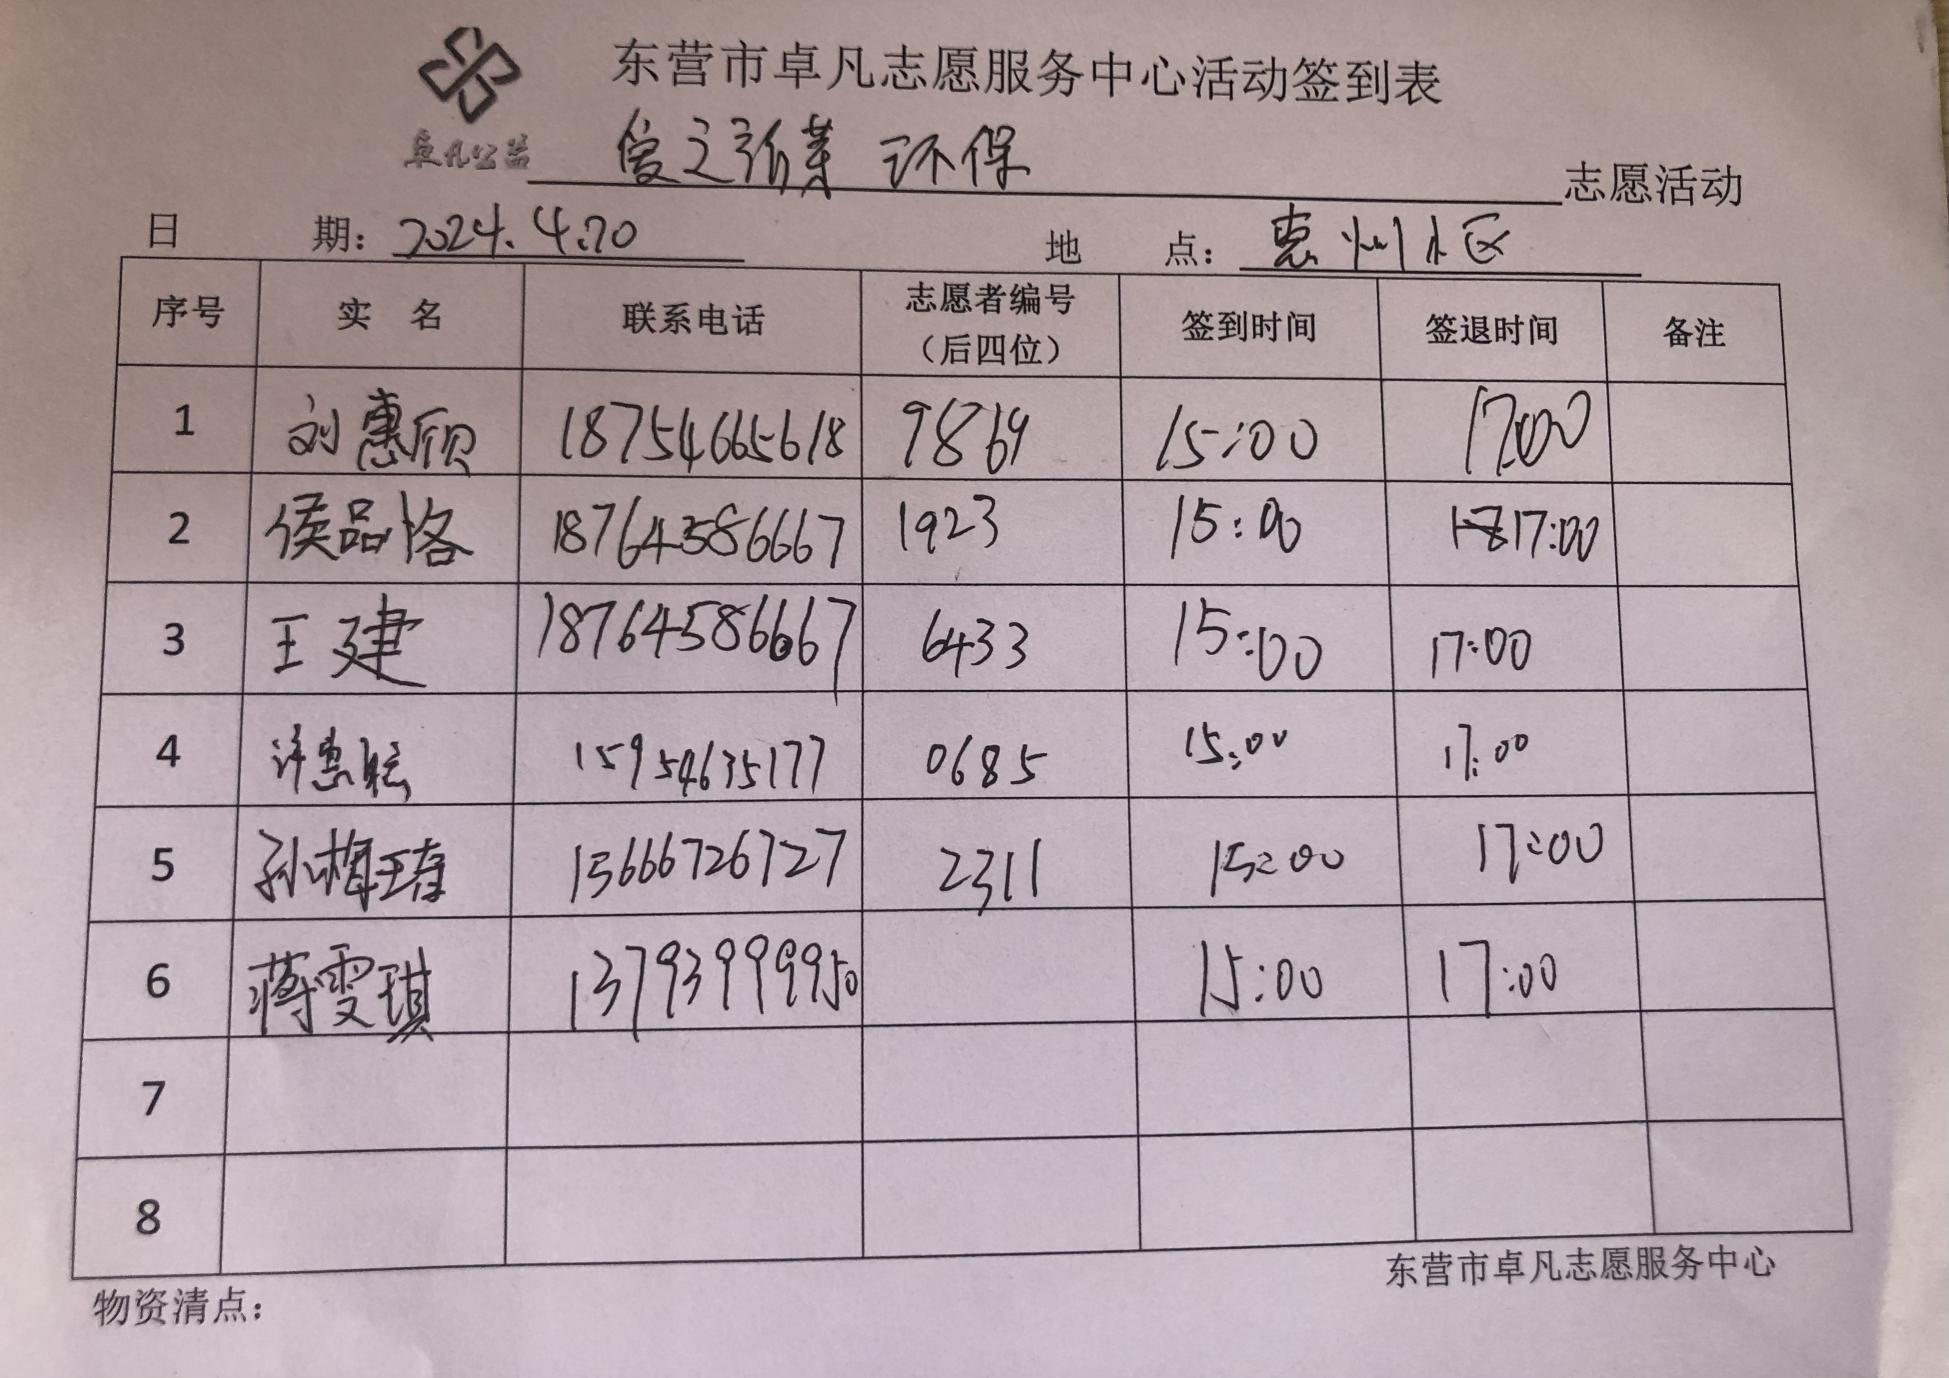 东营市卓凡志愿服务中心活动签到表
卓凡公益 爱之 环保 志愿活动
日 期：2024.4.20 地 点：惠州小区
序号 实 名 联系电话 志愿者编号（后四位） 签到时间 签退时间 备注
1 刘惠颀 18754665618 9869 15:00 17:00
2 侯品恪 18764586667 1923 15:00 17:00
3 王建 18764586667 6433 15:00 17:00
4 许惠 15954635177 0685 15:00 17:00
5 孙梅 15666726727 2311 15:00 17:00
6 蒋雯琪 13793999950 15:00 17:00
7
8
东营市卓凡志愿服务中心
物资清点：